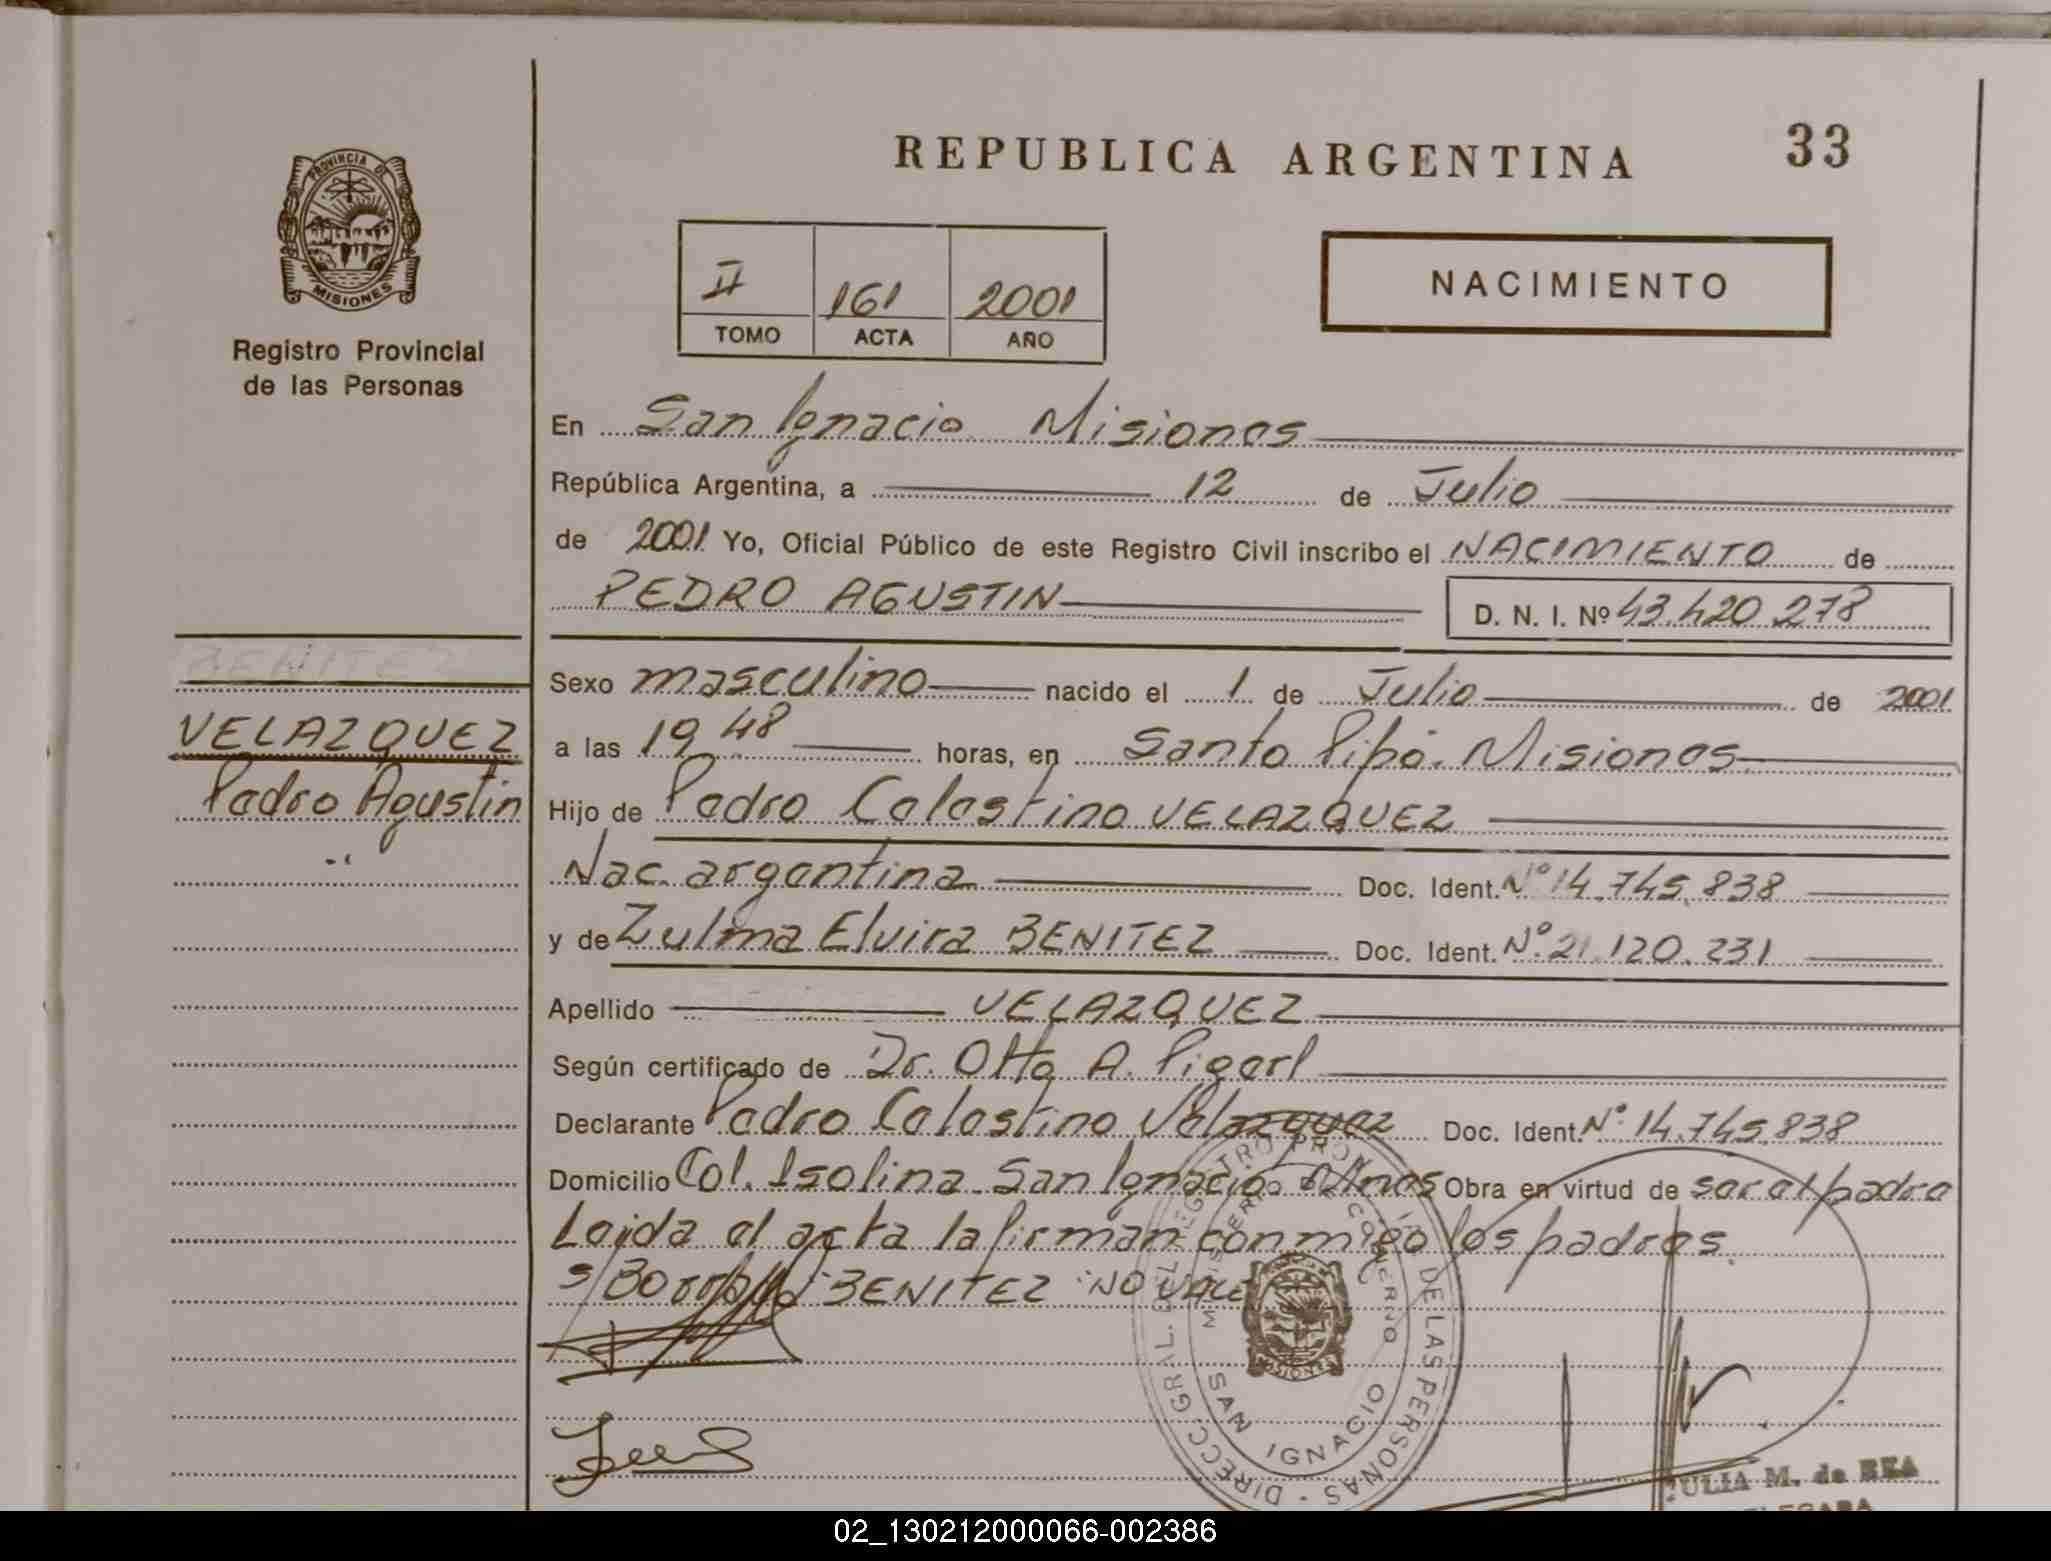 REPUBLICA ARGENTINA
33
PROVINCIA DE
MISIONES
Registro Provincial
de las Personas
II 161 2001
TOMO ACTA AÑO
NACIMIENTO
En San Ignacio Misiones
República Argentina, a 12 de Julio
de 2001 Yo, Oficial Público de este Registro Civil inscribo el NACIMIENTO de
PEDRO AGUSTIN D. N. I. Nº 43.420.278
BENITEZ
VELAZQUEZ
Pedro Agustin
Sexo masculino nacido el 1 de Julio de 2001
a las 19 48 horas, en Santo Pipó. Misiones
Hijo de Pedro Celestino VELAZQUEZ
Nac. argentina Doc. Ident. Nº 14.745.838
y de Zulma Elvira BENITEZ Doc. Ident. Nº 21.120.231
Apellido VELAZQUEZ
Según certificado de Dr. Otto A. Pigerl
Declarante Pedro Celestino Velazquez Doc. Ident. Nº 14.745.838
Domicilio Col. Isolina. San Ignacio. Mnes Obra en virtud de ser el padre
Leida el acta la firman conmigo los padres.
s/Borrado "BENITEZ" NO VALE
DIRECC. GRAL. DEL REGISTRO PROV. DE LAS PERSONAS
GOBIERNO
SAN IGNACIO
MISIONES
JULIA M. de REA
DELEGADA
02_130212000066-002386